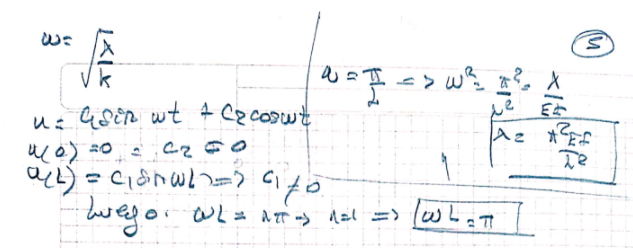 ω = √(λ/k)
u = C₁ sin ωt + C₂ cos ωt
u(0) = 0 = C₂ = 0
u(L) = C₁ sin ωL => C₁ ≠ 0
Luego. ωL = nπ -> n=1 => ωL = π
5
ω = π/L => ω² = π²/L² = λ/EI
λ = π²EI/L²